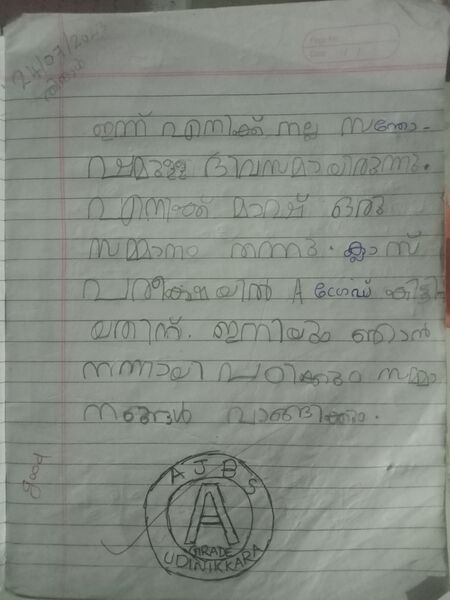 24/07/2023
തിങ്കൾ
ഇന്ന് എനിക്ക് നല്ല സന്തോ-
ഷമുള്ള ദിവസമായിരുന്നു.
എനിക്ക് മാഷ് ഒരു
സമ്മാനം തന്നു. ക്ലാസ്
പരീക്ഷയിൽ A ഗ്രേഡ് കിട്ടി
യതിന്. ഇനിയും ഞാൻ
നന്നായി പഠിക്കും സമ്മാ
നങ്ങൾ വാങ്ങിക്കും.
good
A J B S
A
GRADE
UDINIKKARA